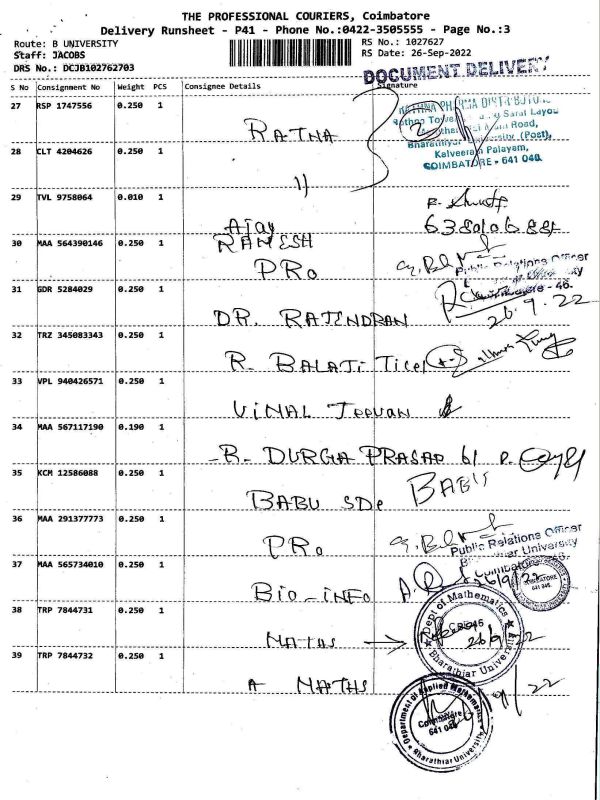 THE PROFESSIONAL COURIERS, Coimbatore
Delivery Runsheet - P41 - Phone No.:0422-3505555 - Page No.:3
Route: B UNIVERSITY
Staff: JACOBS
DRS No.: DCJB102762703
RS No.: 1027627
RS Date: 26-Sep-2022
DOCUMENT DELIVERY
S No Consignment No Weight PCS Consignee Details Signature
27 RSP 1747556 0.250 1
RATNA
Road,
(Post),
Kalveeram Palayam,
COIMBATORE - 641 046.
28 CLT 4204626 0.250 1
1)
29 TVL 9758064 0.010 1
AJAY
30 MAA 564390146 0.250 1
RAMESH
PRO
Public Relations Officer
31 GDR 5284029 0.250 1
DR. RAJENDRAN
26.9.22
32 TRZ 345083343 0.250 1
R. BALAJI
33 VPL 940426571 0.250 1
VIMAL
34 MAA 567117190 0.190 1
R. DURGA PRASAD
35 KCM 12586088 0.250 1
BABU SDE BABU
36 MAA 291377773 0.250 1
PRO
Public Relations Officer
Bharathiar University
Coimbatore - 46.
37 MAA 565734010 0.250 1
BIO-INFO
26/9/22
COIMBATORE
641 046.
38 TRP 7844731 0.250 1
MATHS
Dept of Mathematics
26/9/22
Bharathiar University
39 TRP 7844732 0.250 1
A MATHS
Department of Applied Mathematics
Coimbatore
641 046
Bharathiar University